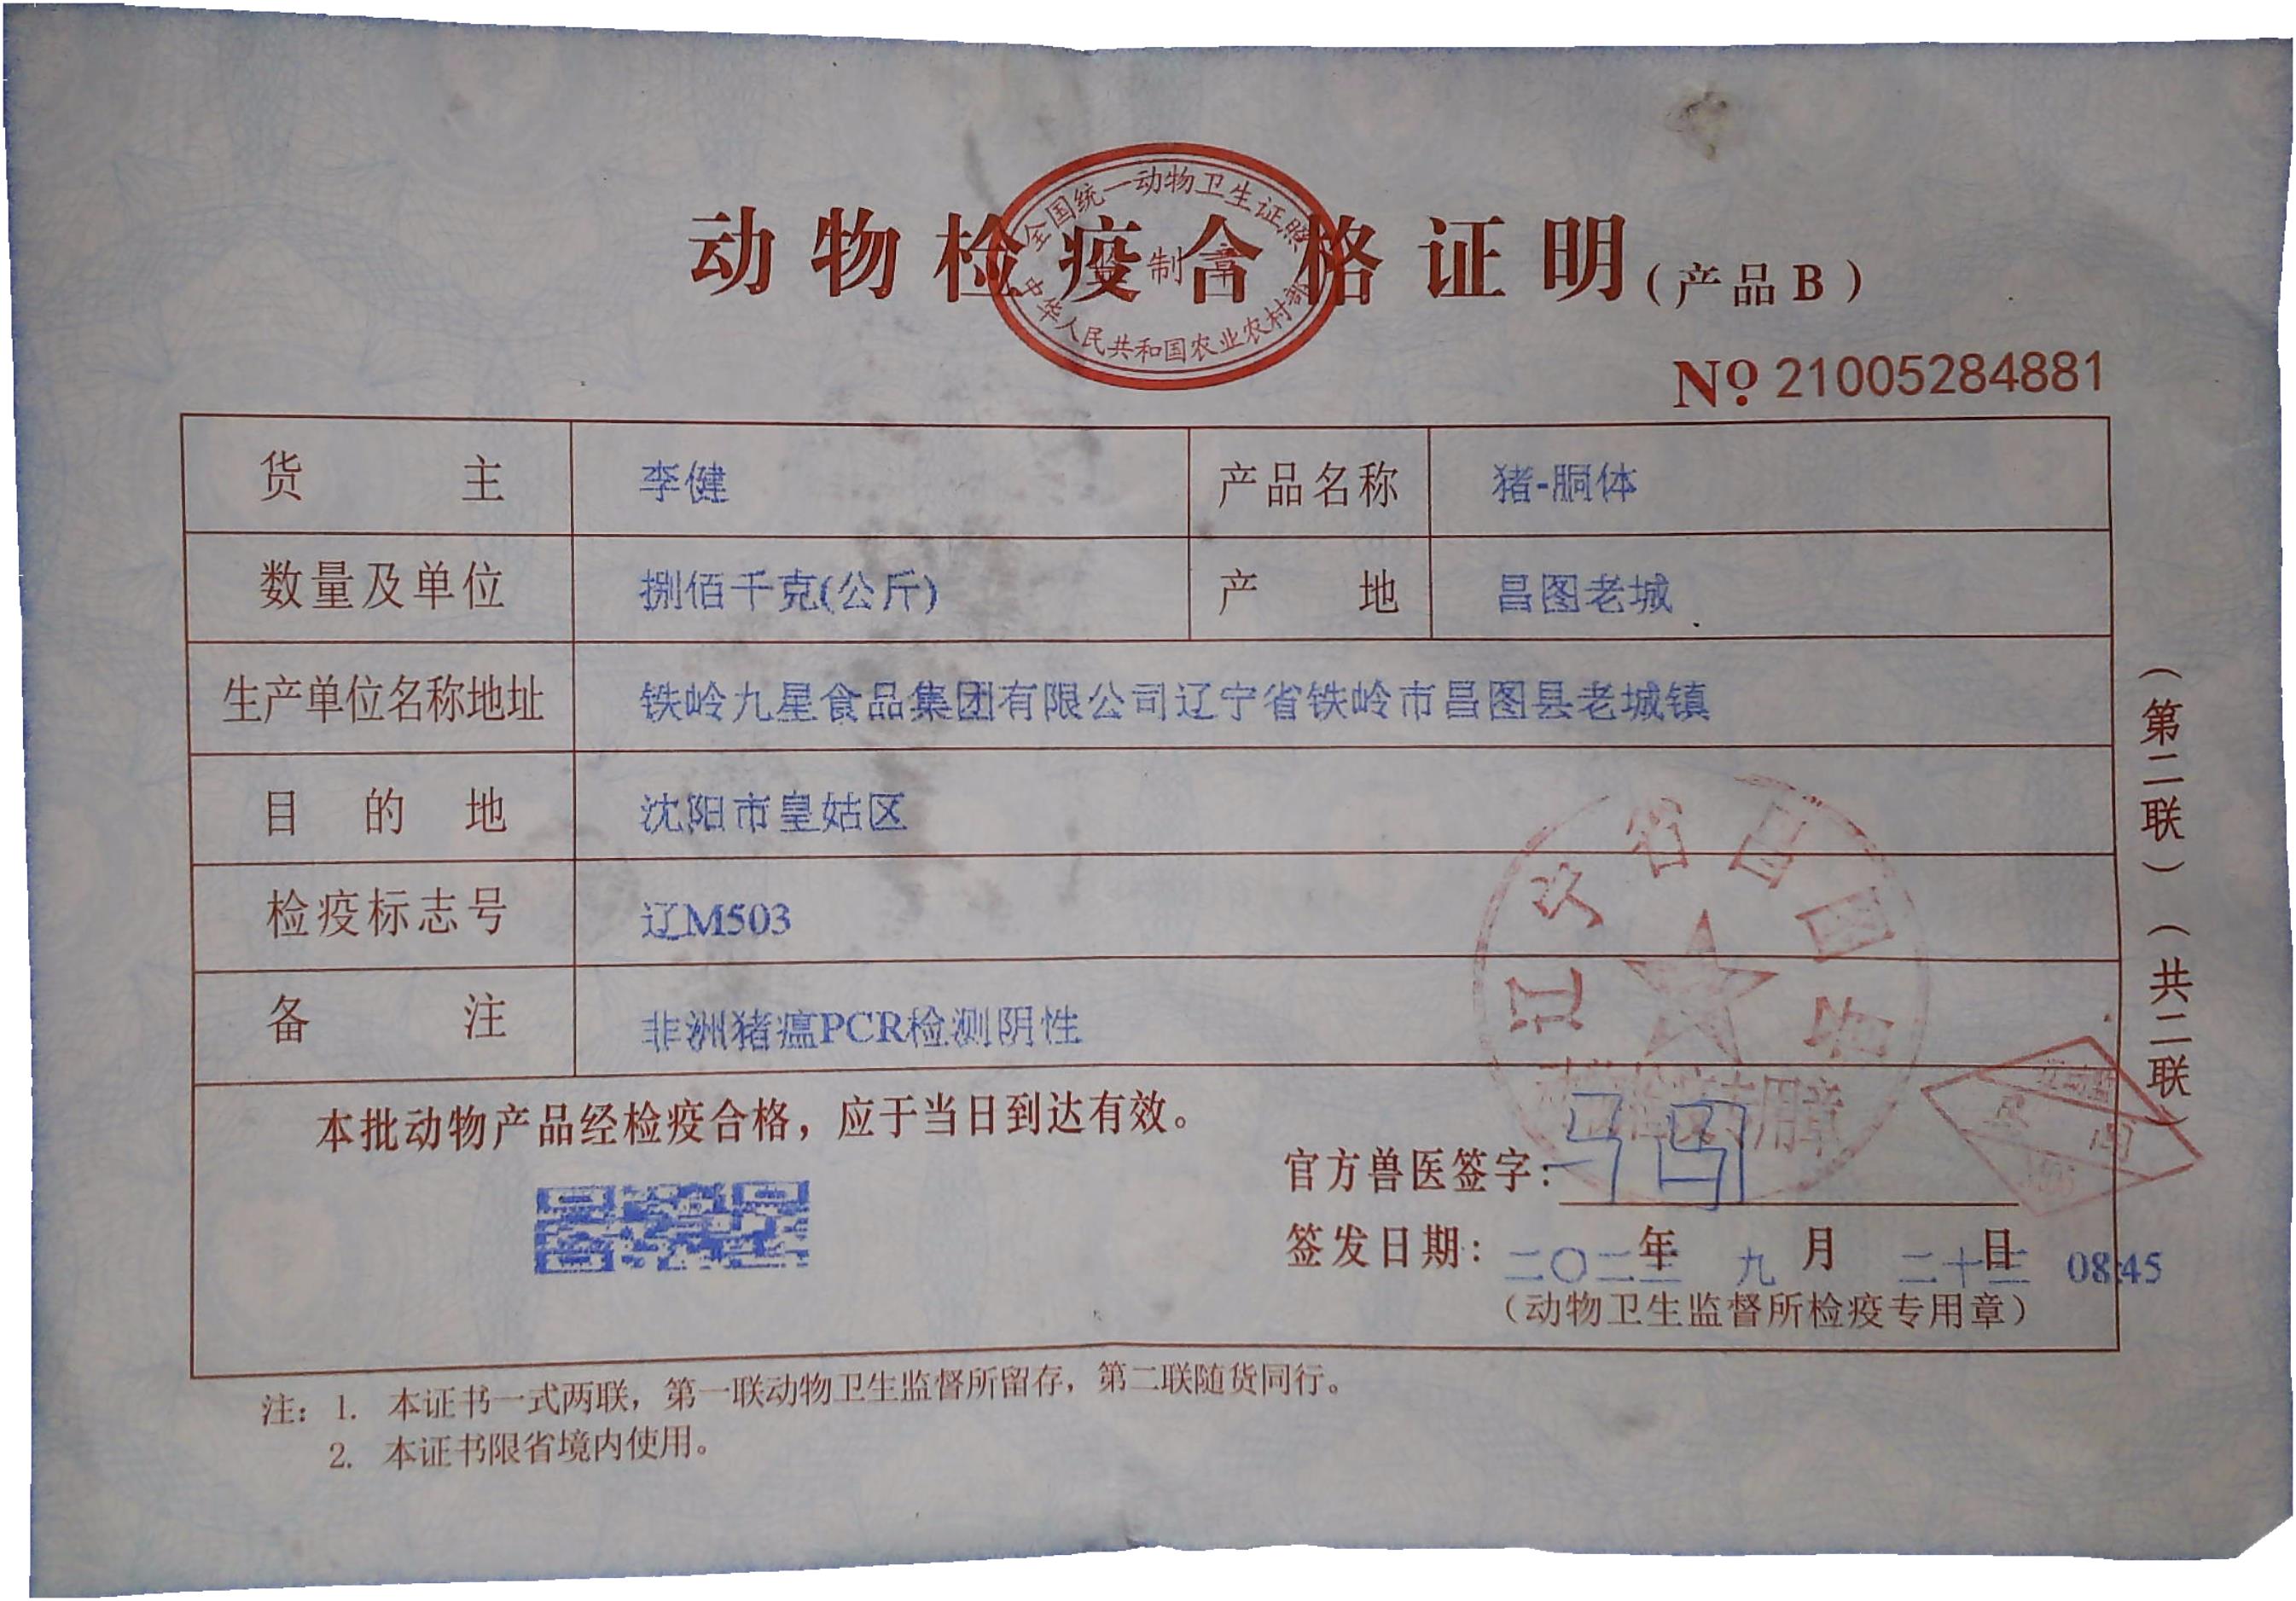 全国统一动物卫生证照
监制章
中华人民共和国农业农村部
动物检疫合格证明(产品B)
№ 21005284881
货主 李健 产品名称 猪-胴体
数量及单位 捌佰千克(公斤) 产地 昌图老城
生产单位名称地址 铁岭九星食品集团有限公司辽宁省铁岭市昌图县老城镇
目的地 沈阳市皇姑区
检疫标志号 辽M503
备注 非洲猪瘟PCR检测阴性
(第二联)(共二联)
本批动物产品经检疫合格，应于当日到达有效。
官方兽医签字:
签发日期: 年 九月 日 08:45
(动物卫生监督所检疫专用章)
注: 1. 本证书一式两联，第一联动物卫生监督所留存，第二联随货同行。
2. 本证书限省境内使用。